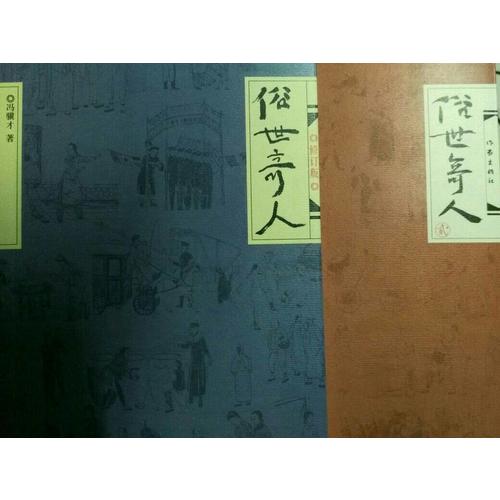 冯骥才 著
俗世奇人
修订版
俗世奇人
贰
作家出版社